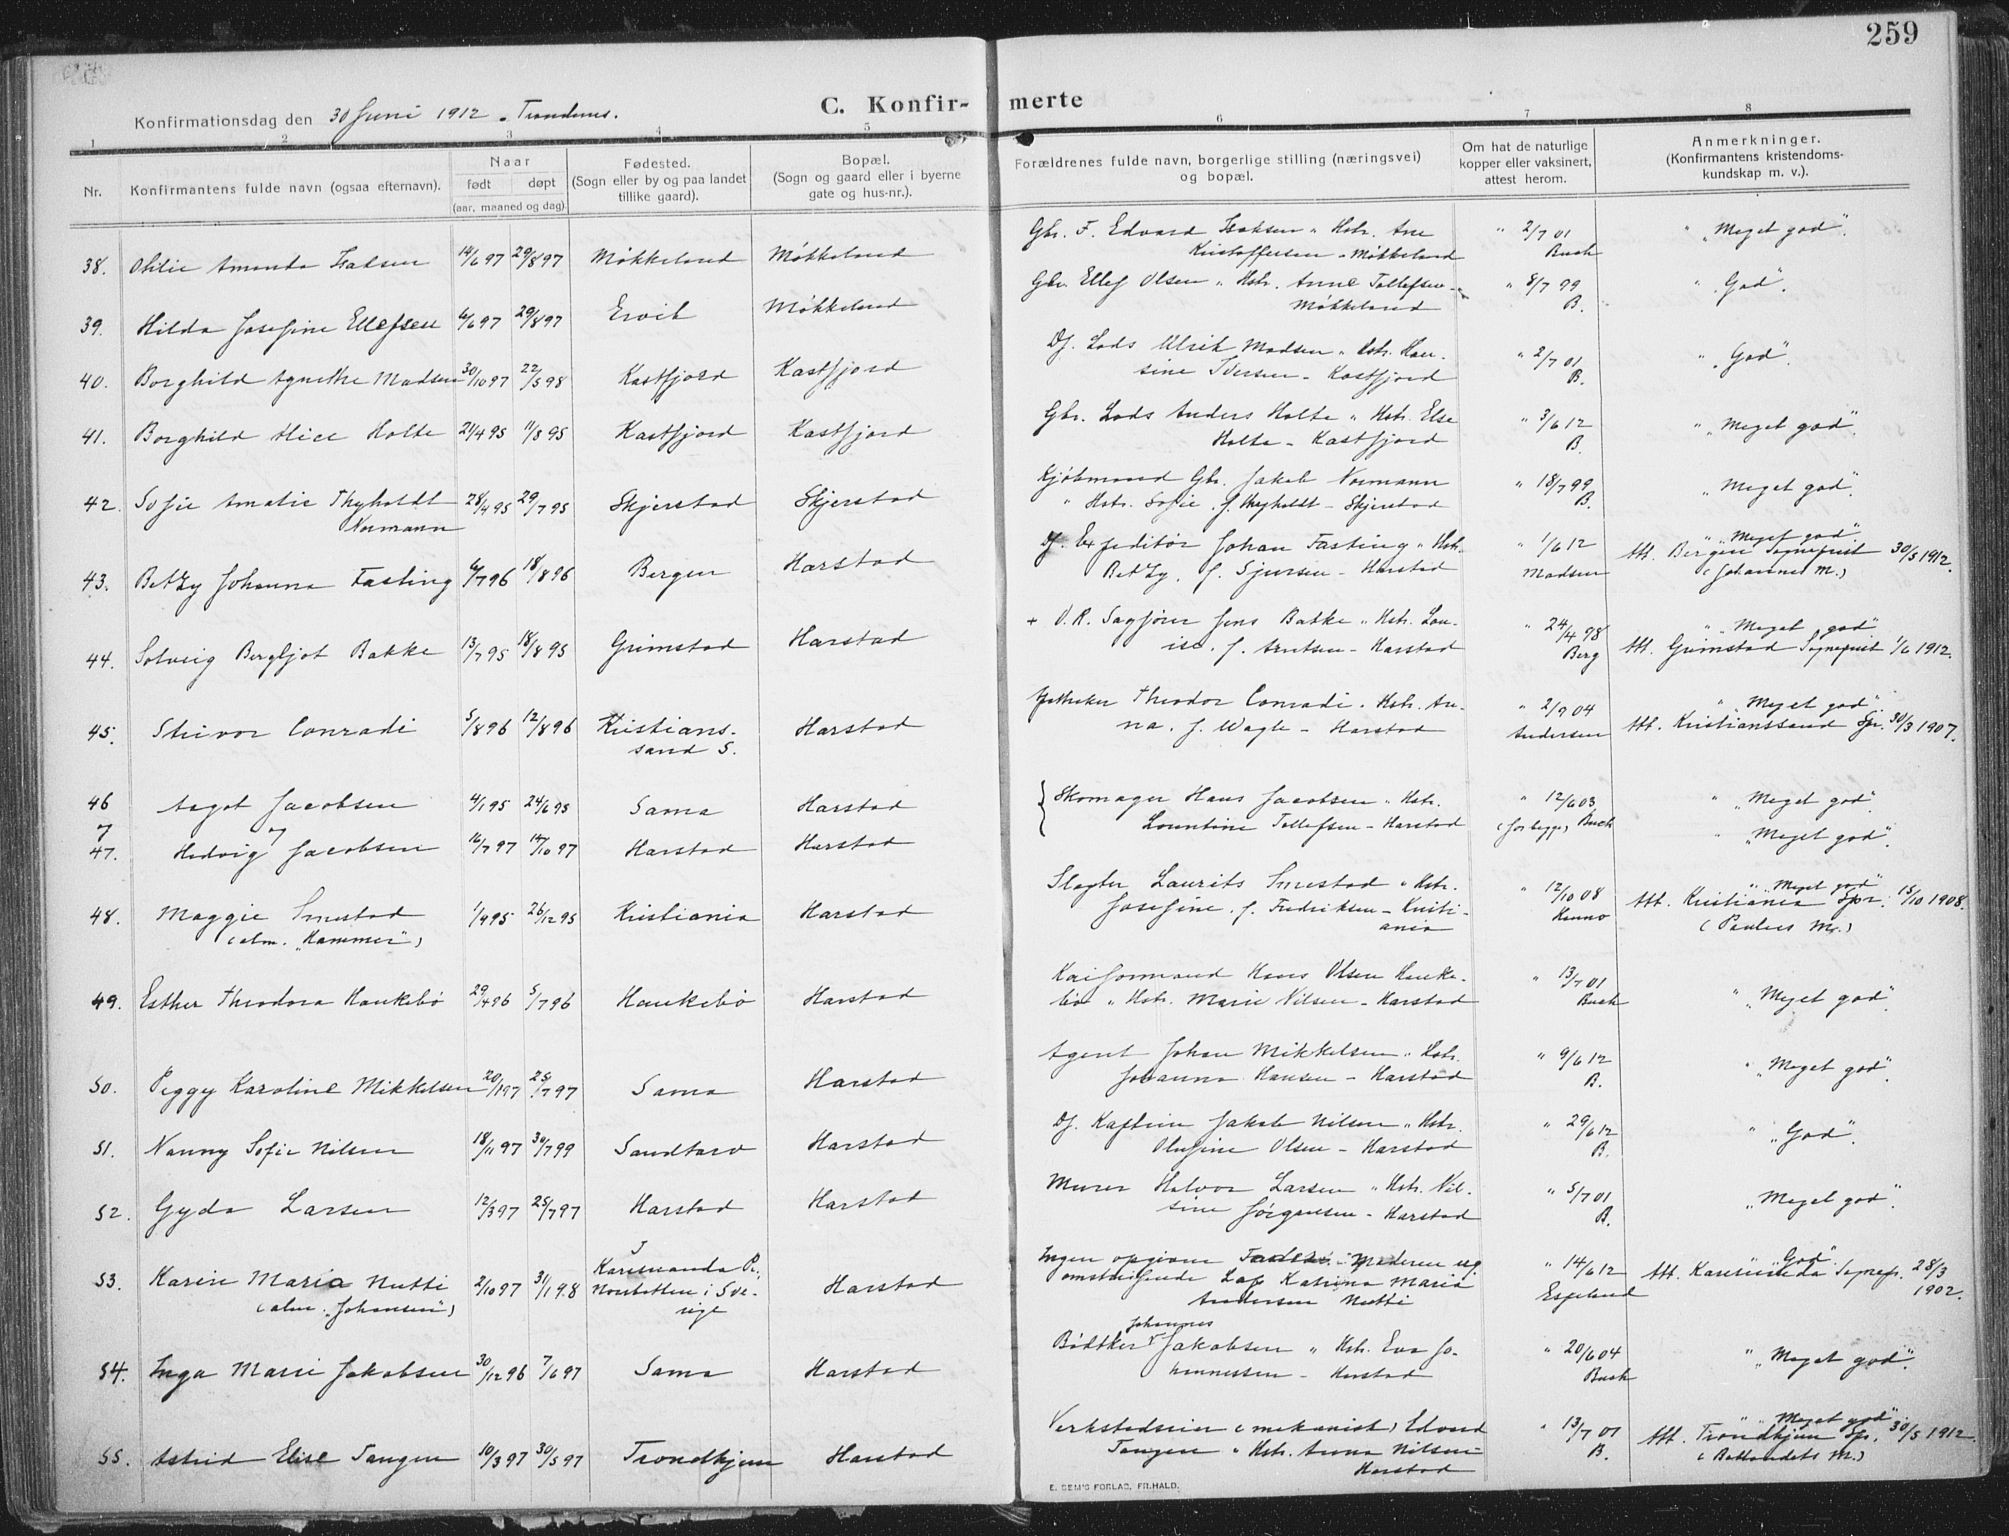 259
C. Konfir- merte
Konfirmationsdag den 30 Juni 1912 - Trondenes.
1 2 3 4 5 6 7 8
Nr.
Konfirmantens fulde navn (ogsaa efternavn).
Naar
født døpt
(aar, maaned og dag)
Fødested.
(Sogn eller by og paa landet
tillike gaard).
Bopæl.
(Sogn og gaard eller i byerne
gate og hus-nr.).
Forældrenes fulde navn, borgerlige stilling (næringsvei)
og bopæl.
Om hat de naturlige
kopper eller vaksinert,
attest herom.
Anmerkninger.
(Konfirmantens kristendoms-
kundskap m. v.).
38. Otilie Amanda Isaksen 14/6 97 29/8 97 Møkkeland Møkkeland
Gbr. F. Edvard Isaksen " Hstr. Ane " 2/7 01 " "Meget god".
Kristoffersen - Møkkeland Buch
39. Hilda Josefine Ellefsen 6/6 97 29/8 97 Ervik Møkkeland
Gbr. Ellef Olsen " Hstr. Anne Tollefsen - " 8/7 99 " "God".
Møkkeland B.
40. Borghild Agnethe Madsen 30/10 97 22/5 98 Kastfjord Kastfjord
Df. Lods Ulrik Madsen " Hstr. Han- " 2/7 01 " "God".
sine Iversen - Kastfjord B.
41. Borghild Alice Holte 21/4 95 11/8 95 Kastfjord Kastfjord
Gbr. Lods Anders Holte " Hstr. Else " 3/6 12 " "Meget god".
Holte - Kastfjord B.
42. Sofie Amalie Thyholdt 28/4 95 29/7 95 Skjerstad Skjerstad
Normann
Kjøbmand Gbr. Jakob Normann " 18/7 99 " "Meget god".
" Hstr. Sofie f. Thyholdt - Skjerstad B.
43. Betzy Johanna Fasting 6/7 96 18/8 96 Bergen Harstad
Df. Expeditør Johan Fasting " Hstr. " 1/6 12 " "Meget god".
Betzy, f. Sjursen - Harstad Madsen Att. Bergen Sogneprest 30/5 1912.
(Johannes M.)
44. Solveig Bergljot Bakke 13/7 95 18/8 95 Grimstad Harstad
+ O.R. Sagfører Jens Bakke " Hstr. Lou- " 24/4 98 " "Meget god"
ise, f. Arntsen - Harstad Berg Att. Grimstad Sogneprest 1/6 1912.
45. Conradi 5/8 96 12/8 96 Kristians- Harstad
sand S.
Apotheker Theodor Conradi " Hstr. An- " 2/9 04 " "Meget god"
na, f. Wagle - Harstad Andersen Att. Kristianssand Spr. 30/3 1907.
46 Aagot Jacobsen 4/1 95 24/6 95 Sama Harstad
47. Hedvig Jacobsen 16/7 97 14/10 97 Harstad Harstad
Skomager Hans Jacobsen " Hstr. " 12/6 03 " "Meget god".
Tollefsen - Harstad (for begge) Buch " "Meget god".
48. Maggie Smestad 1/4 95 26/12 95 Kristiania Harstad
(alm. "Hammer")
Slagter Laurits Smestad " Hstr. " 12/10 08 " "Meget god"
Josefine f. Fredriksen - Kristi- Att. Kristiania Spr. 15/10 1908.
ania (Paulus M.)
49. Esther Theodora Haukebø 29/4 96 5/7 96 Haukebø Harstad
Kaiformand Hans Olsen Hauke- " 13/7 01 " "Meget god".
bø " Hstr. Marie Nilsen - Harstad Buch
50. Peggy Karoline Mikkelsen 20/1 97 25/7 97 Sama Harstad
Agent Johan Mikkelsen " Hstr. " 9/6 12 " "Meget god".
Johanna Hansen - Harstad B.
51. Nanny Sofie Nilsen 18/11 97 30/7 99 Sandtorv Harstad
Df. Kaptein Jakob Nilsen " Hstr. " 29/6 12 " "God".
Olufine Olsen - Harstad B.
52. Gyda Larsen 12/3 97 25/7 97 Harstad Harstad
Murer Halvor Larsen " Hstr. Nil- " 5/7 01 "Meget god".
sine Jørgensen - Harstad B.
53. Karin Maria Nutti 2/10 97 31/1 98 Karesuanda Harstad
(alm. "Johansen") Norrbotten i Sve-
rige
Ingen opgiven Fader. - Moderen ug. " 14/6 12 "God"
omstreifende Lap Katrina Maria Espeland Att. Karesuanda Sognepr. 28/3
Andersen Nutti 1902.
54. Inga Marie Jakobsen 30/12 96 7/6 97 Sama Harstad
Johannes
Bødtker Jakobsen " Hstr. Eva Jo- " 20/6 04 " "Meget god".
hannessen - Harstad Buch
55. Astrid Elise Tangen 10/3 97 30/5 97 Trondhjem Harstad
Verkstedseier (mekanisk) Edvard " 13/7 01 " "Meget god".
Tangen " Hstr. Anna Nilsen - B. Att. Trondhjem Spr. 30/5 1912.
Harstad (Baklandets M.)
E. SEM'S FORLAG, FR.HALD.